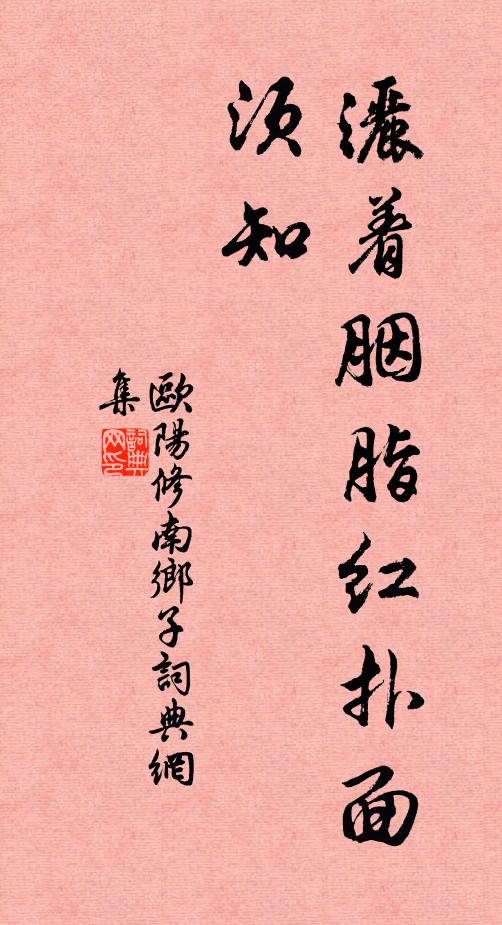 灑着胭脂红扑面
须知
歐陽修南鄉子詞典網
集
詞典
网印